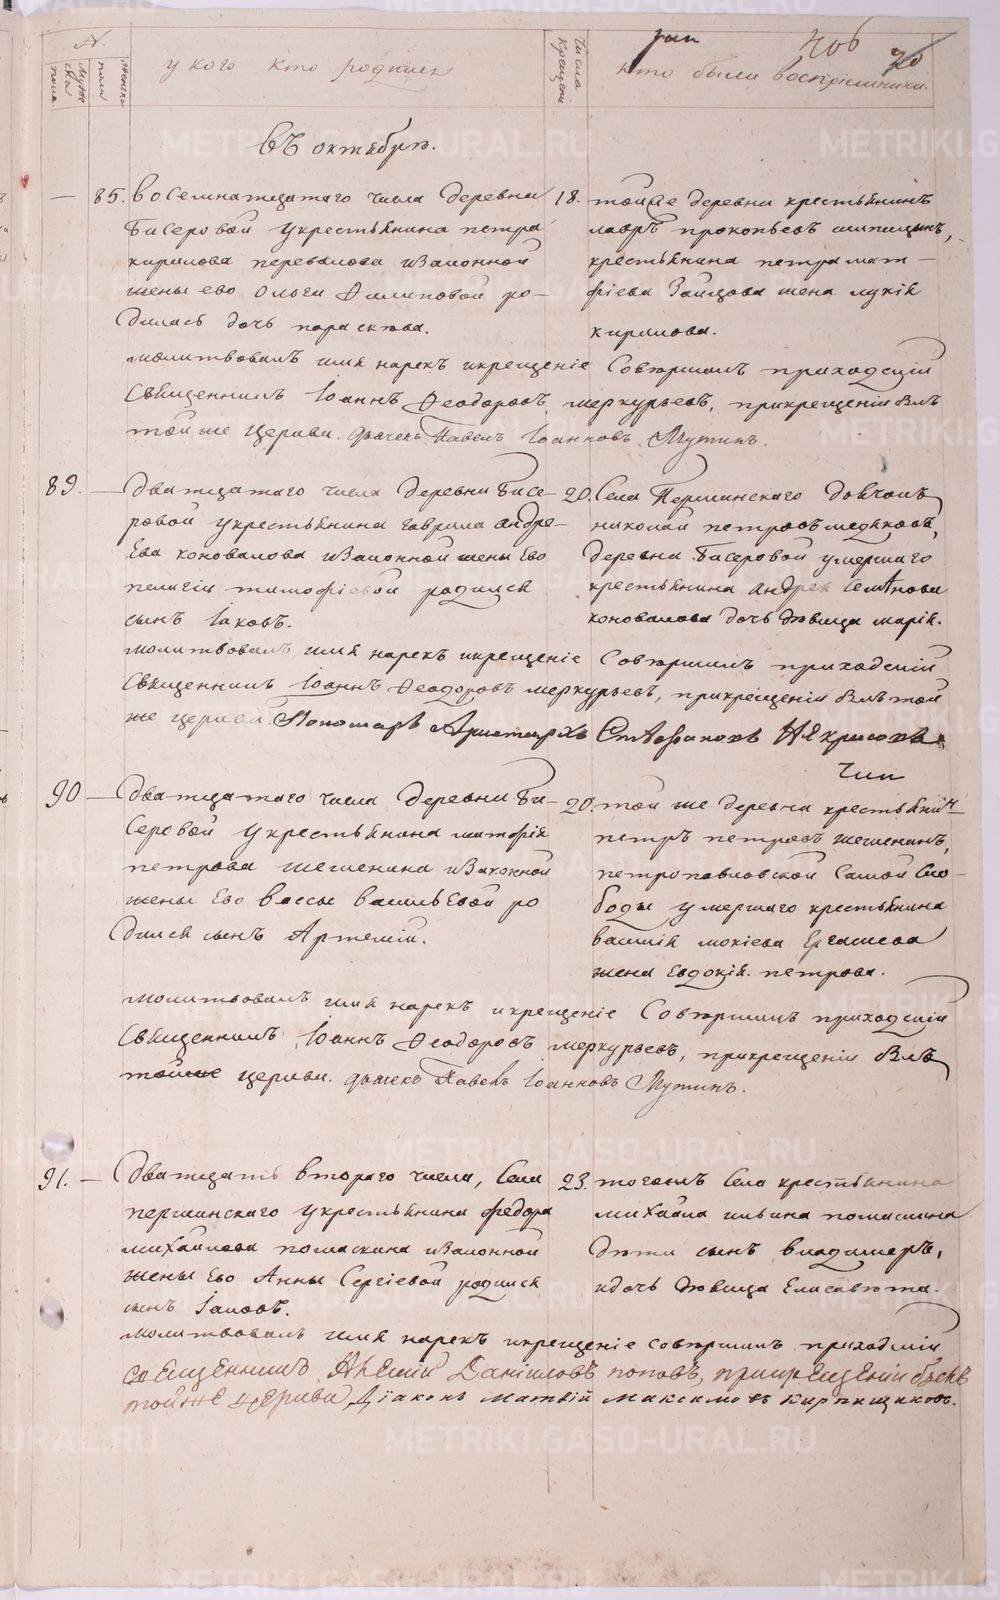 №
Мужеска пола
Женска пола
у кого кто родился
Числа Крещенiя
кто были восприемники.
406
въ октябрѣ.
85. восемнатцатаго числа деревни
Бисеровой укрестьянина петра
кирилова перевалова изаконной
жены ево Ольги Филиповой ро-
дилась дочь параскева.
18. тойже деревни крестьянинъ
лавръ прокопьевъ шипицынъ,
крестьянина петра мат-
фiева Зайцова жена лукiя
кирилова.
молитвовалъ имя нарекъ икрещенiе совершилъ приходскiй
Священникъ Iоаннъ Феодоровъ меркурьевъ, прикрещенiи былъ
той же церкви. дьячекъ Павелъ Iоанновъ Мутинъ.
89. Дватцатаго числа деревни Бисе-
ровой укрестьянина гаврила андре-
ева коновалова изаконной жены Ево
пелагiи тимофiевой родился
сынъ Iаковъ.
20. Села Першинскаго Дьячокъ
николай петровъ медяковъ,
деревни Бисеровой умершаго
крестьянина андрея семѣнова
коновалова дочь дѣвица марiя.
молитвовалъ имя нарекъ икрещенiе Совершилъ приходскiй
Священникъ Iоаннъ Феодоровъ меркурьевъ, прикрещенiи былъ той
же церкви Пономарь Аристархъ Стефановъ Некрасовъ
90 Дватцатаго числа деревни Би-
серовой укрестьянина матфiя
петрова шешенина изаконной
жены Ево вассы васильевой ро
дился сынъ Артемiй.
20. той же деревни крестьянинъ
петръ петровъ шешенинъ,
петропавловской Самой Сло-
боды умершаго крестьянина
василiя мокiева Ергашева
жена Евдокiя петрова.
молитвовалъ имя нарекъ икрещенiе Совершилъ приходскiй
Священникъ Iоаннъ Феодоровъ меркурьевъ, прикрещенiи былъ
тойже церкви. дьячекъ Павелъ Iоанновъ Мутинъ.
91. Дватцать втораго числа, Села
першинскаго укрестьянина федора
михайлова помаскина изаконной
жены Ево Анны Сергiевой родился
сынъ Iаковъ.
23. тогожъ Села крестьянина
михайла ильина помаскина
дѣти сынъ владимеръ,
идочь дѣвица Елисавета.
молитвовалъ имя нарекъ икрещенiе совершилъ приходскiй
священникъ Алексiй Данiиловъ поповъ, прикрещенiи былъ
тойже церкви Дiаконъ Матвiй Максимовъ Кирпищиковъ.
METRIKI.GASO-URAL.RU